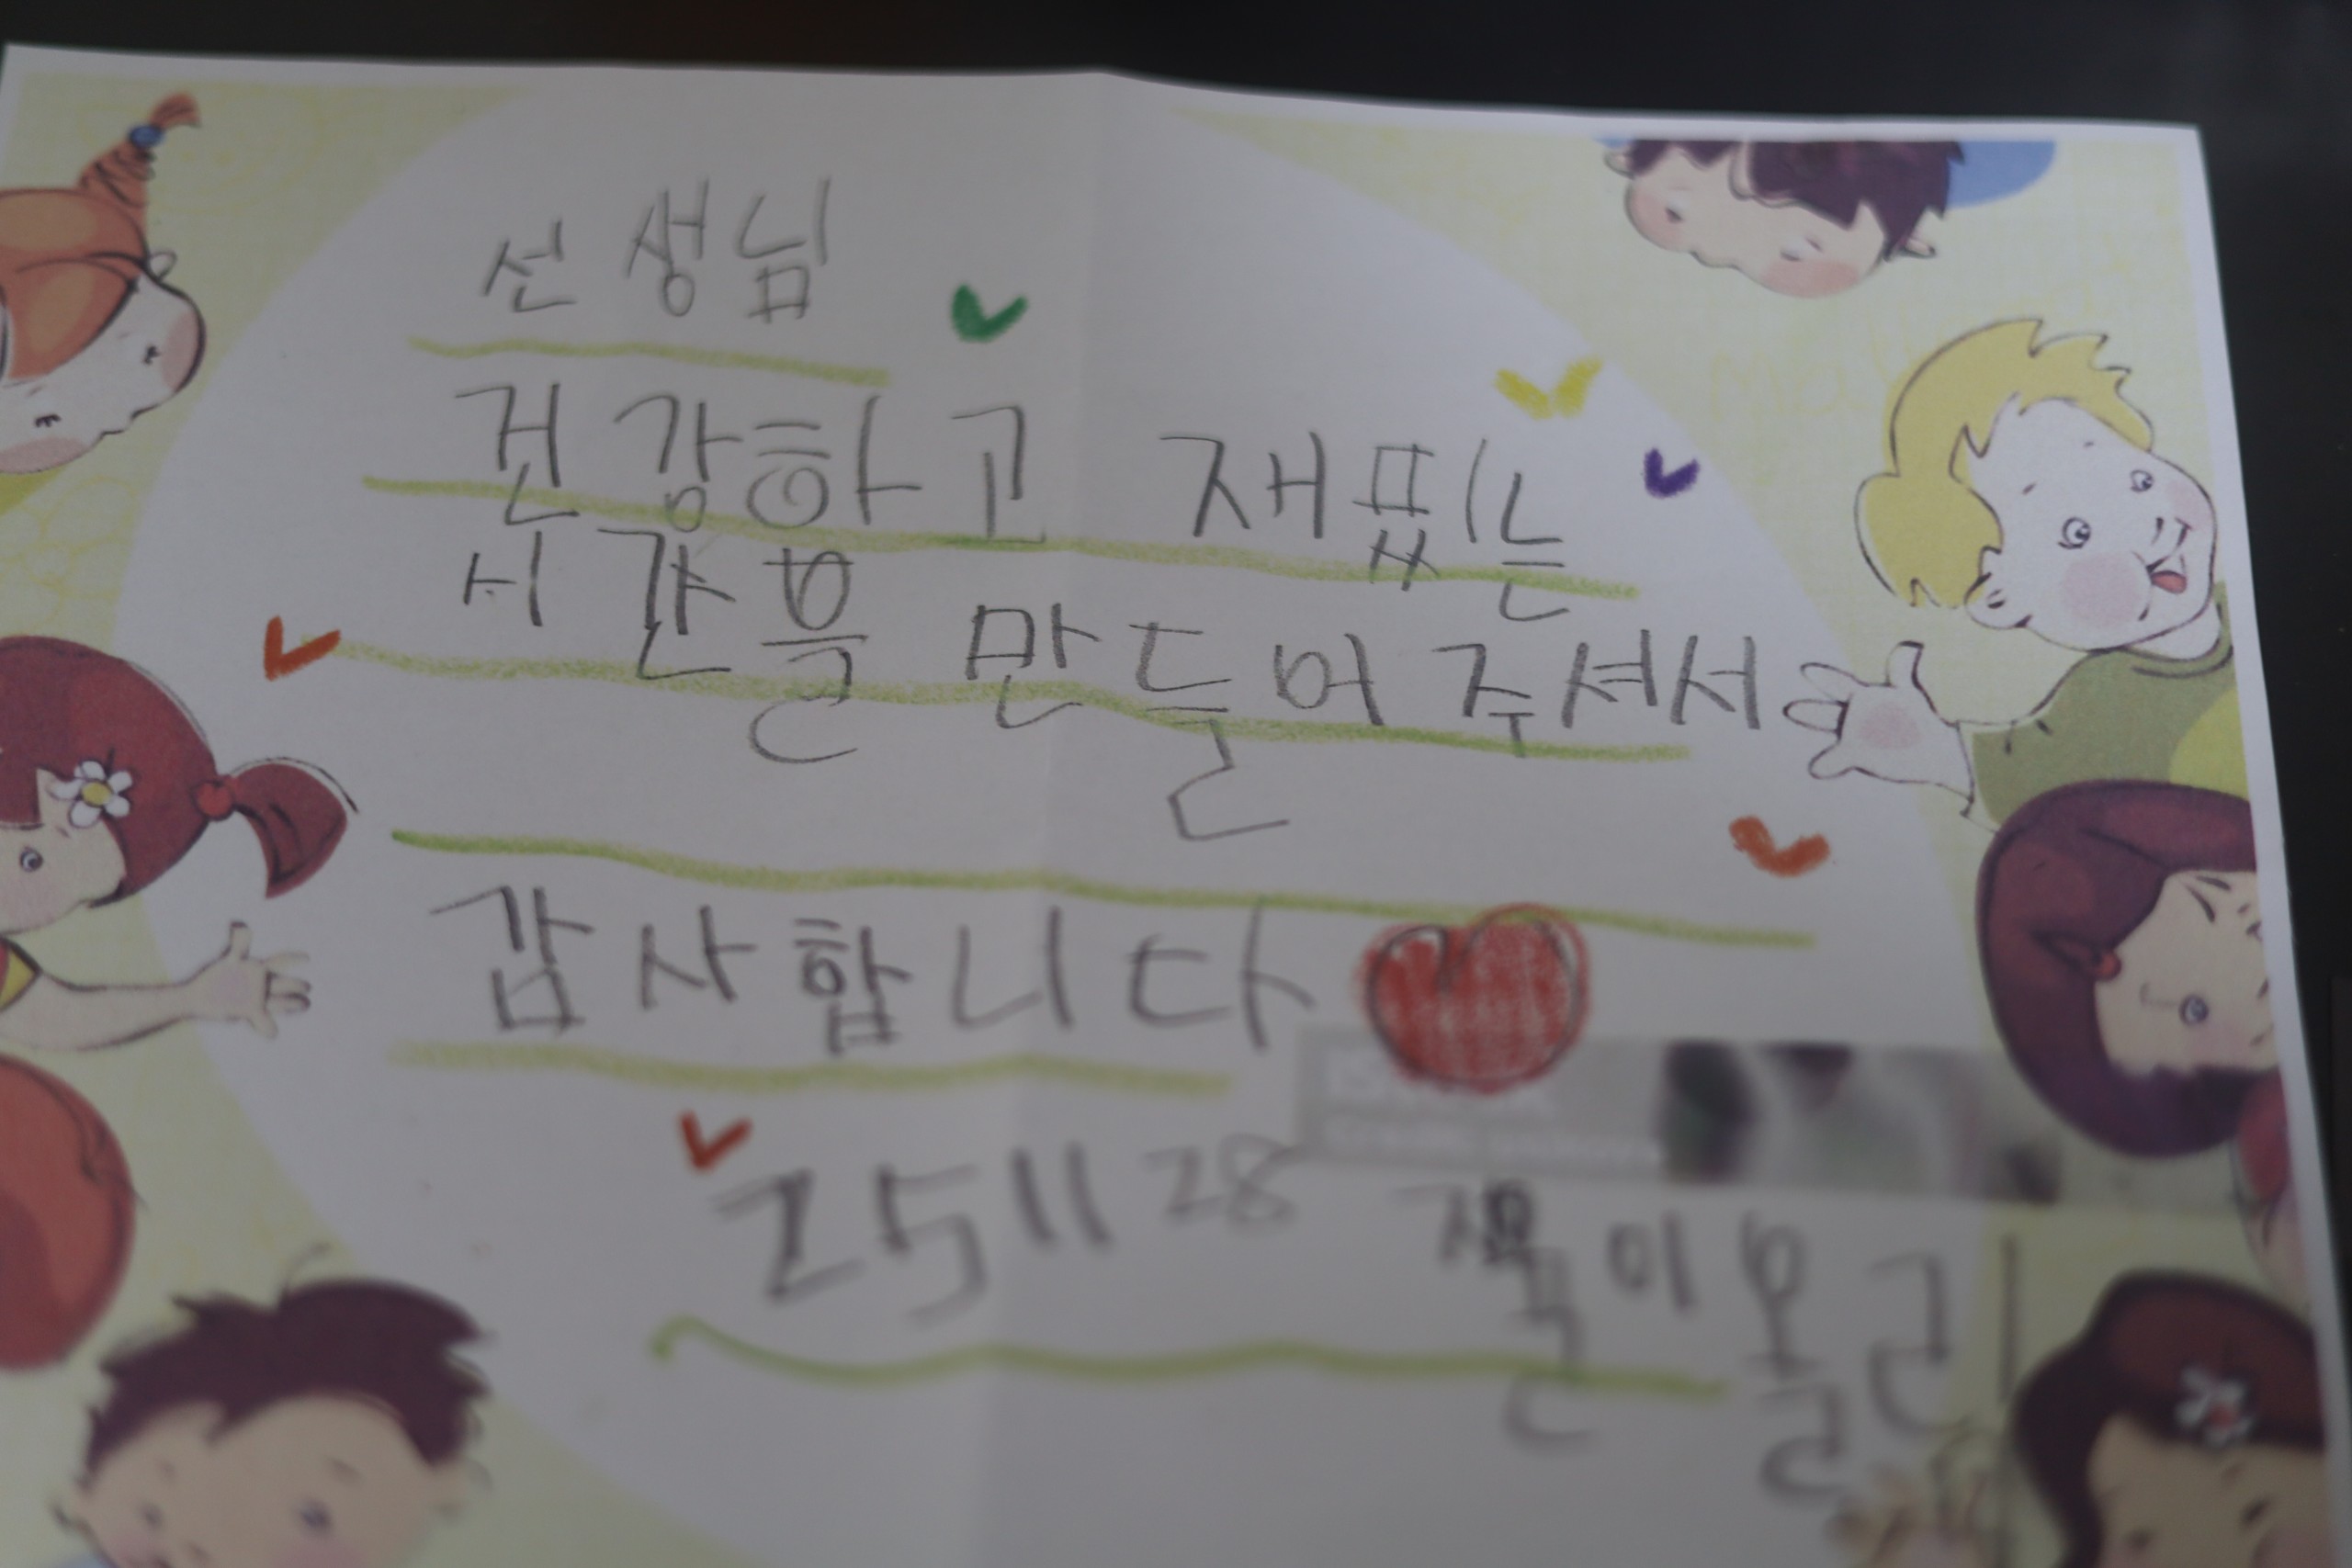 선생님
건강하고 재밌는
시간을 만들어주셔서
감사합니다
251128
이올림